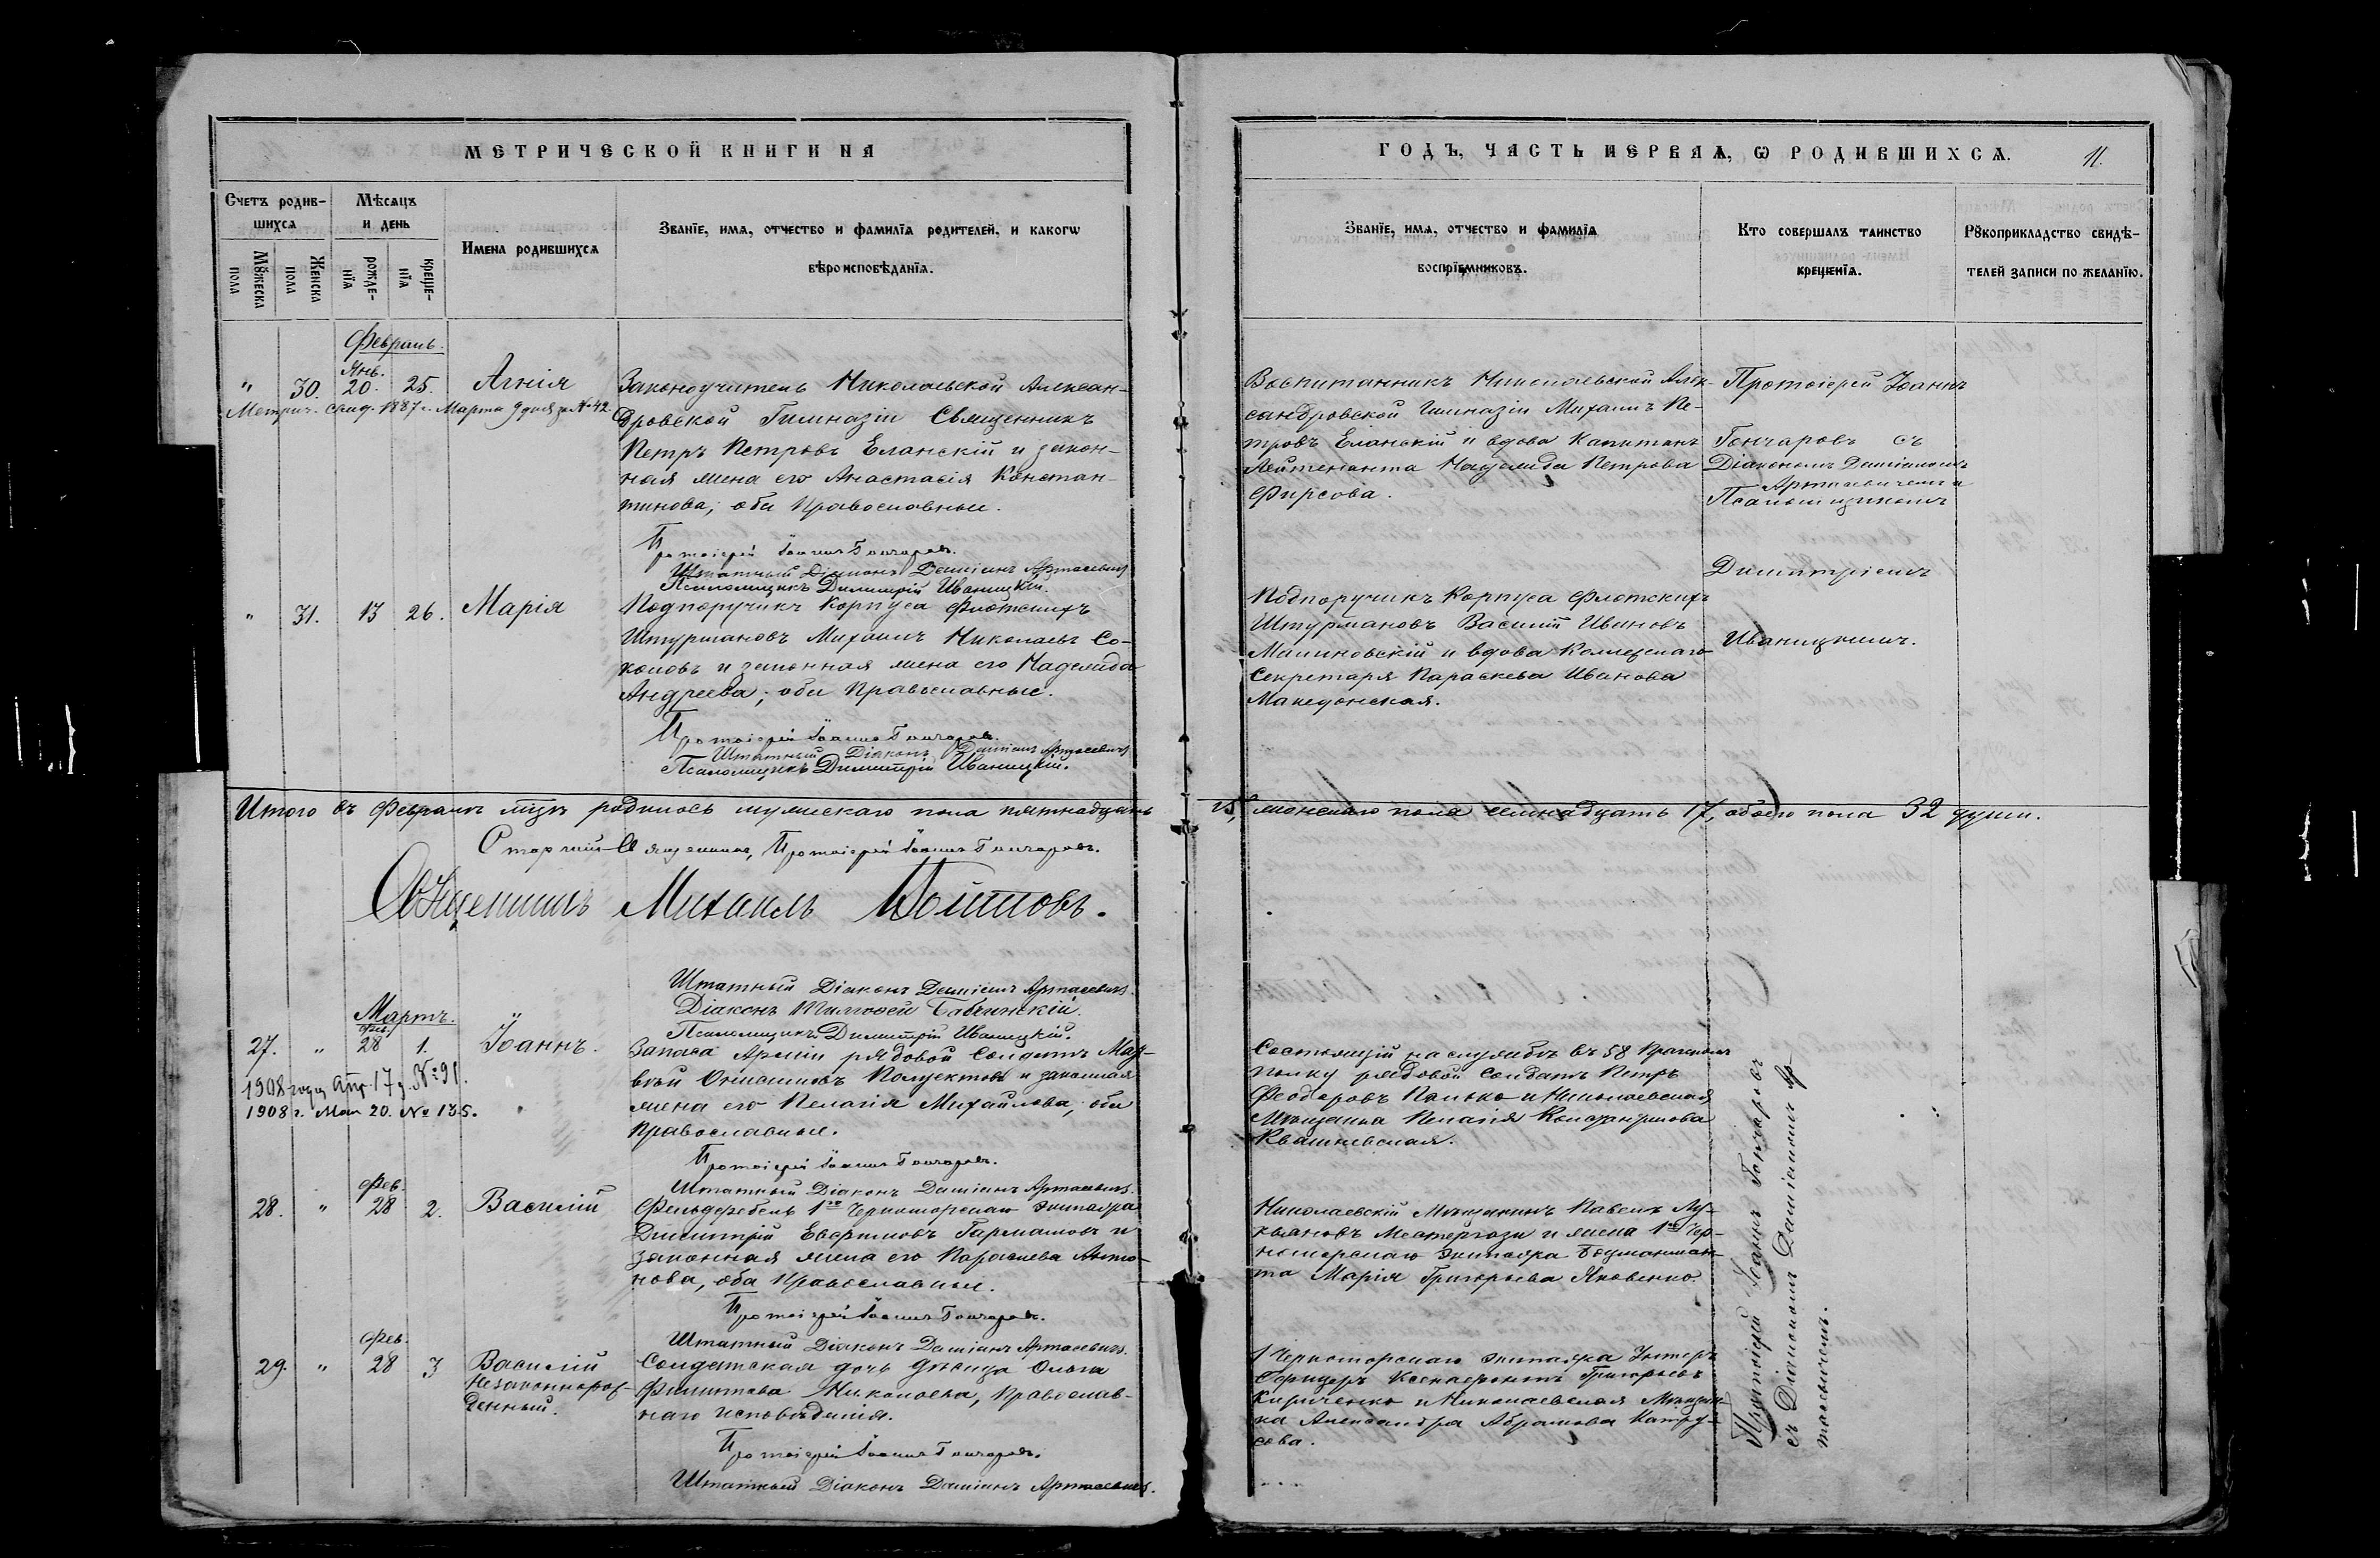 МЕТРИЧЕСКОЙ КНИГИ НА
Счетъ родив-
шихся
Мѣсяцъ
и день
Имена родившихся
Званїе, имя, отчество и фамилїя родителей, и какогѡ
вѣроисповѣданїя.
Мꙋжеска
пола
Женска
пола
рожде-
нїя
креще-
нїя
Февраль.
Янв.
" 30. 20. 25. Агнія
Метрич. свид. 1887 г. Марта 9 дня за № 42.
Законоучитель Николаевской Алексан-
дровской Гимназіи Священникъ
Петръ Петровъ Еланскій и закон-
ная жена его Анастасія Констан-
тинова, оба Православные.
Протоіерей Іоаннъ Гончаровъ.
Штатный Діаконъ Даміанъ Артасевичъ
Псаломщикъ Димитрій Иваницкій.
" 31. 13 26. Марія
Подпоручикъ Корпуса Флотскихъ
Штурмановъ Михаилъ Николаевъ Со-
коловъ и законная жена его Надежда
Андреева, оба Православные.
Протоіерей Іоаннъ Гончаровъ.
Штатный Діаконъ Даміанъ Артасевичъ
Псаломщикъ Димитрій Иваницкій.
Итого въ Февралѣ мцѣ родилось мужескаго пола пятнадцать
Старшій Священникъ, Протоіерей Іоаннъ Гончаровъ.
Священникъ Михаилъ
Штатный Діаконъ Даміанъ Артасевичъ.
Діаконъ Тимофей Бабчинскій.
Псаломщикъ Димитрій Иваницкій.
Мартъ.
Фев.
27. " 28 1. Іоаннъ.
1908 года Апр. 17 д. № 91.
1908 г. Мая 20. № 135.
Запаса Арміи рядовой Солдатъ
Онисимовъ Полуектовъ и законная
жена его Пелагія Михайлова, оба
Православные.
Протоіерей Іоаннъ Гончаровъ.
Штатный Діаконъ Даміанъ Артасевичъ.
Фев.
28. " 28 2. Василій
Фельдфебель 1го Черноморскаго Экипажа
Димитрій Евфимовъ Гармашовъ и
законная жена его Параскева Анто-
нова, оба Православные.
Протоіерей Іоаннъ Гончаровъ.
Штатный Діаконъ Даміанъ Артасевичъ.
Фев.
29. " 28 3 Василій
Незаконнорож-
денный.
Солдатская дочь дѣвица Ольга
Филиппова Николаева, Православ-
наго исповѣданія.
Протоіерей Іоаннъ Гончаровъ.
Штатный Діаконъ Даміанъ Артасевичъ.
ГОДЪ, ЧАСТЬ ПЕРВАЯ, Ѡ РОДИВШИХСЯ.
11.
Званїе, имя, отчество и фамилїя
воспрїемниковъ.
Кто совершалъ таинство
крещенїя.
Рꙋкоприкладство свидѣ-
телей записи по желанїю.
Воспитанникъ Николаевской Алек-
сандровской Гимназіи Михаилъ Пе-
тровъ Еланскій и вдова Капитанъ
Лейтенанта Надежда Петрова
Фирсова.
Протоіерей Іоаннъ
Гончаровъ съ
Діакономъ Даміаномъ
Артасевичемъ и
Псаломщикомъ
Димитріемъ
Иваницкимъ.
Подпоручикъ Корпуса Флотскихъ
Штурмановъ Василій Ивановъ
Малиновскій и вдова Коллежскаго
Секретаря Параскева Иванова
Македонская.
15, женскаго пола семнадцать 17, обоего пола 32 души.
Состоящій на службѣ въ 58 Пражскомъ
полку рядовой Солдатъ Петръ
Феодоровъ Палько и Николаевская
Мѣщанка Пелагія Константинова
Квашневская.
Николаевскій Мѣщанинъ Павелъ Лу-
кьяновъ и жена 1го Чер-
номорскаго Экипажа Боцманмат-
та Марія Григорьева Яковенко.
1 Черноморскаго Экипажа Унтеръ
Офицеръ Ксенофонтъ Григорьевъ
Кириченко и Николаевская Мѣщан-
ка Александра Абрамова Катру-
сова.
Протоіерей Іоаннъ Гончаровъ
съ Діакономъ Даміаномъ Ар-
тасевичемъ.